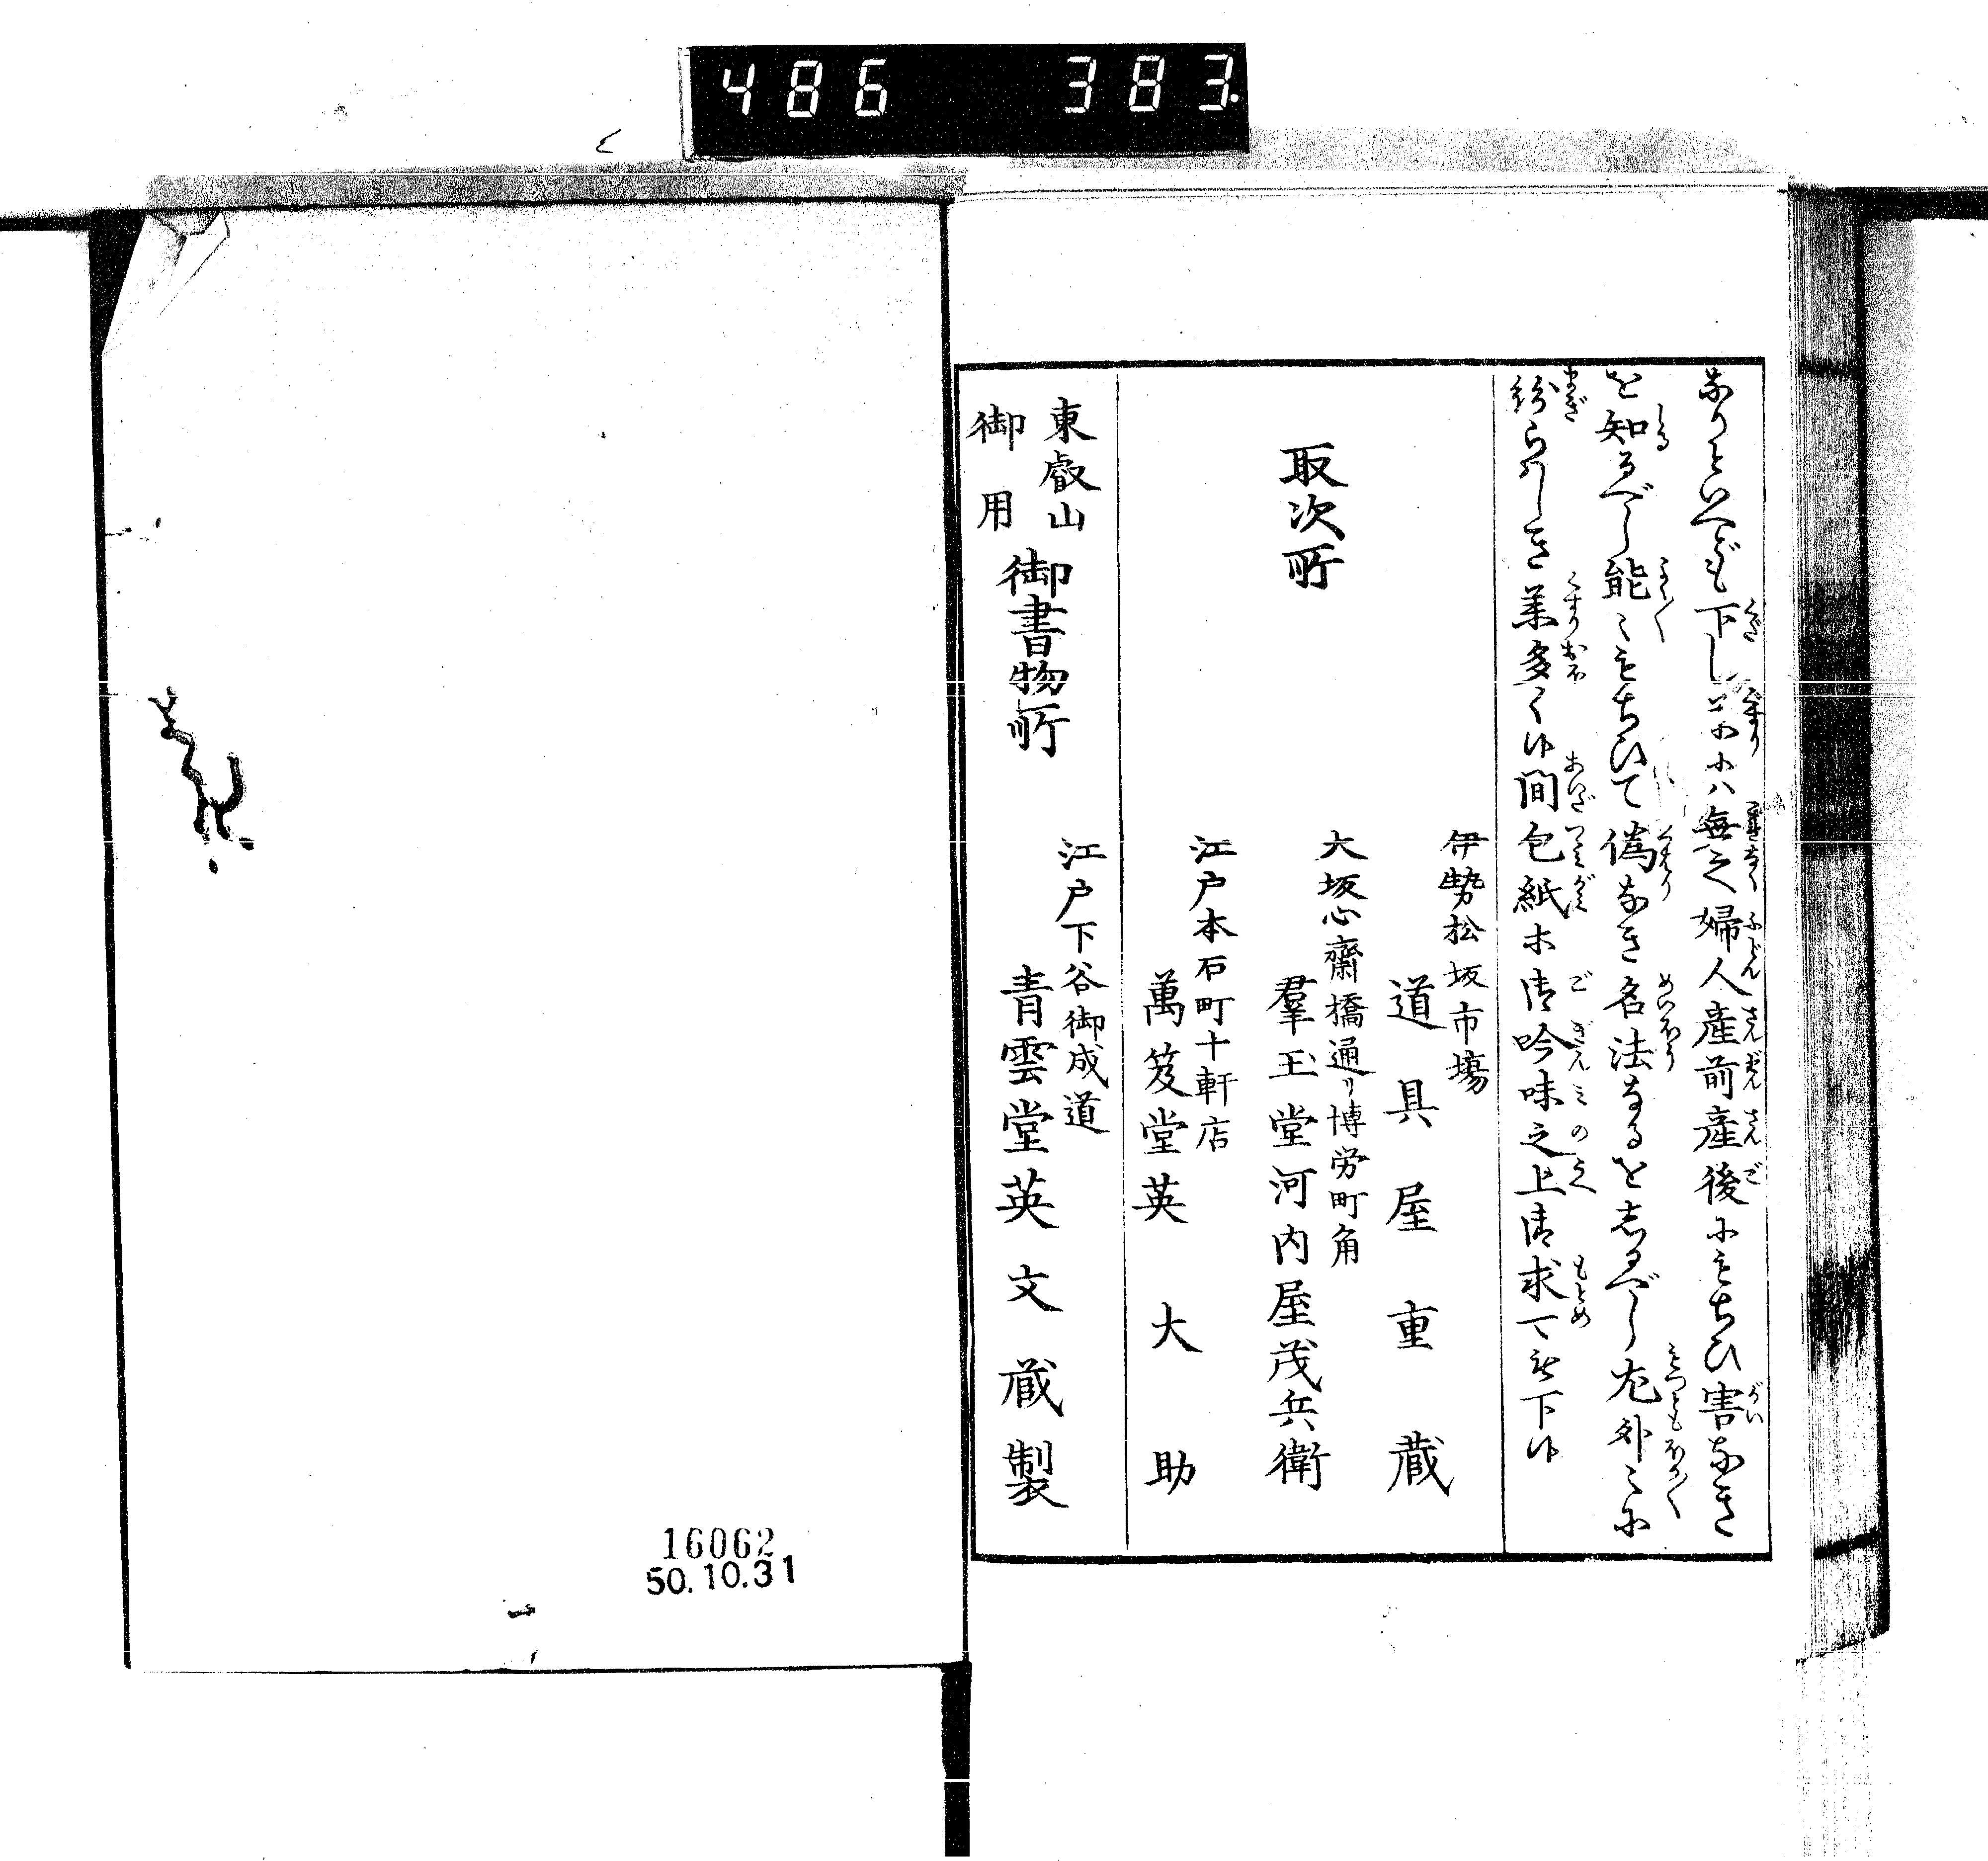 486 383
なりといへども下し薬にハ無之婦人産前産後にもちひ害なき
を知るべし能〻もちひて偽なき名法なるを志るべし尤外〻に
紛らハしき薬多く候間包紙等御吟味之上御求可被下候
取次所
伊勢松坂市場
道具屋重蔵
大坂心齋橋通リ博労町角
羣玉堂河内屋茂兵衛
江戸本石町十軒店
萬笈堂英大助
東叡山
御用
御書物所
江戸下谷御成道
青雲堂英文蔵製
16062
50.10.31